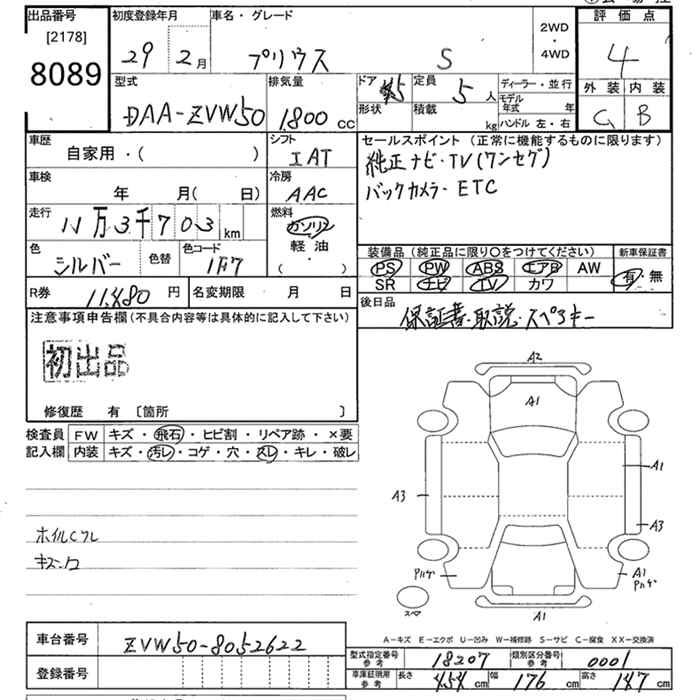 出品番号
[2178]
8089
初度登録年月
29 2月
車名・グレード
プリウス S
2WD
・
4WD
評価点
4
型式
DAA-ZVW50
排気量
1,800 cc
ドア 5
形状
定員 5 人
積載 kg
ディーラー・並行
モデル年式 年
ハンドル 左・右
外装 内装
C B
車歴
自家用・( )
シフト
IAT
セールスポイント (正常に機能するものに限ります)
純正ナビ・TV(ワンセグ)
バックカメラ・ETC
車検
年 月( 日)
冷房
AAC
走行
11万3千703km
燃料
ガソリン
軽油
・
( )
色
シルバー
色替
色コード
1F7
装備品 (純正品に限り○をつけてください)
PS PW ABS エアB AW
SR ナビ TV カワ
新車保証書
有・無
R券
11,480円
名変期限 月 日
後日品
保証書・取説・スペアキー
注意事項申告欄(不具合内容等は具体的に記入して下さい)
初出品
修復歴 有 〔箇所 〕
検査員
記入欄
FW キズ・飛石・ヒビ割・リペア跡・×要
内装 キズ・汚レ・コゲ・穴・スレ・キレ・破レ
A2
A1
A1
A3
A3
ホイルCフレ
キズ
Pハゲ
A1
Pハゲ
スペア
A1
A-キズ E-エクボ U-凹み W-補修跡 S-サビ C-腐食 XX-交換済
車台番号
ZVW50-8052622
登録番号
型式指定番号
参考
18207
類別区分番号
参考
0001
車庫証明用
参考
長さ 454 cm
幅 176 cm
高さ 147 cm